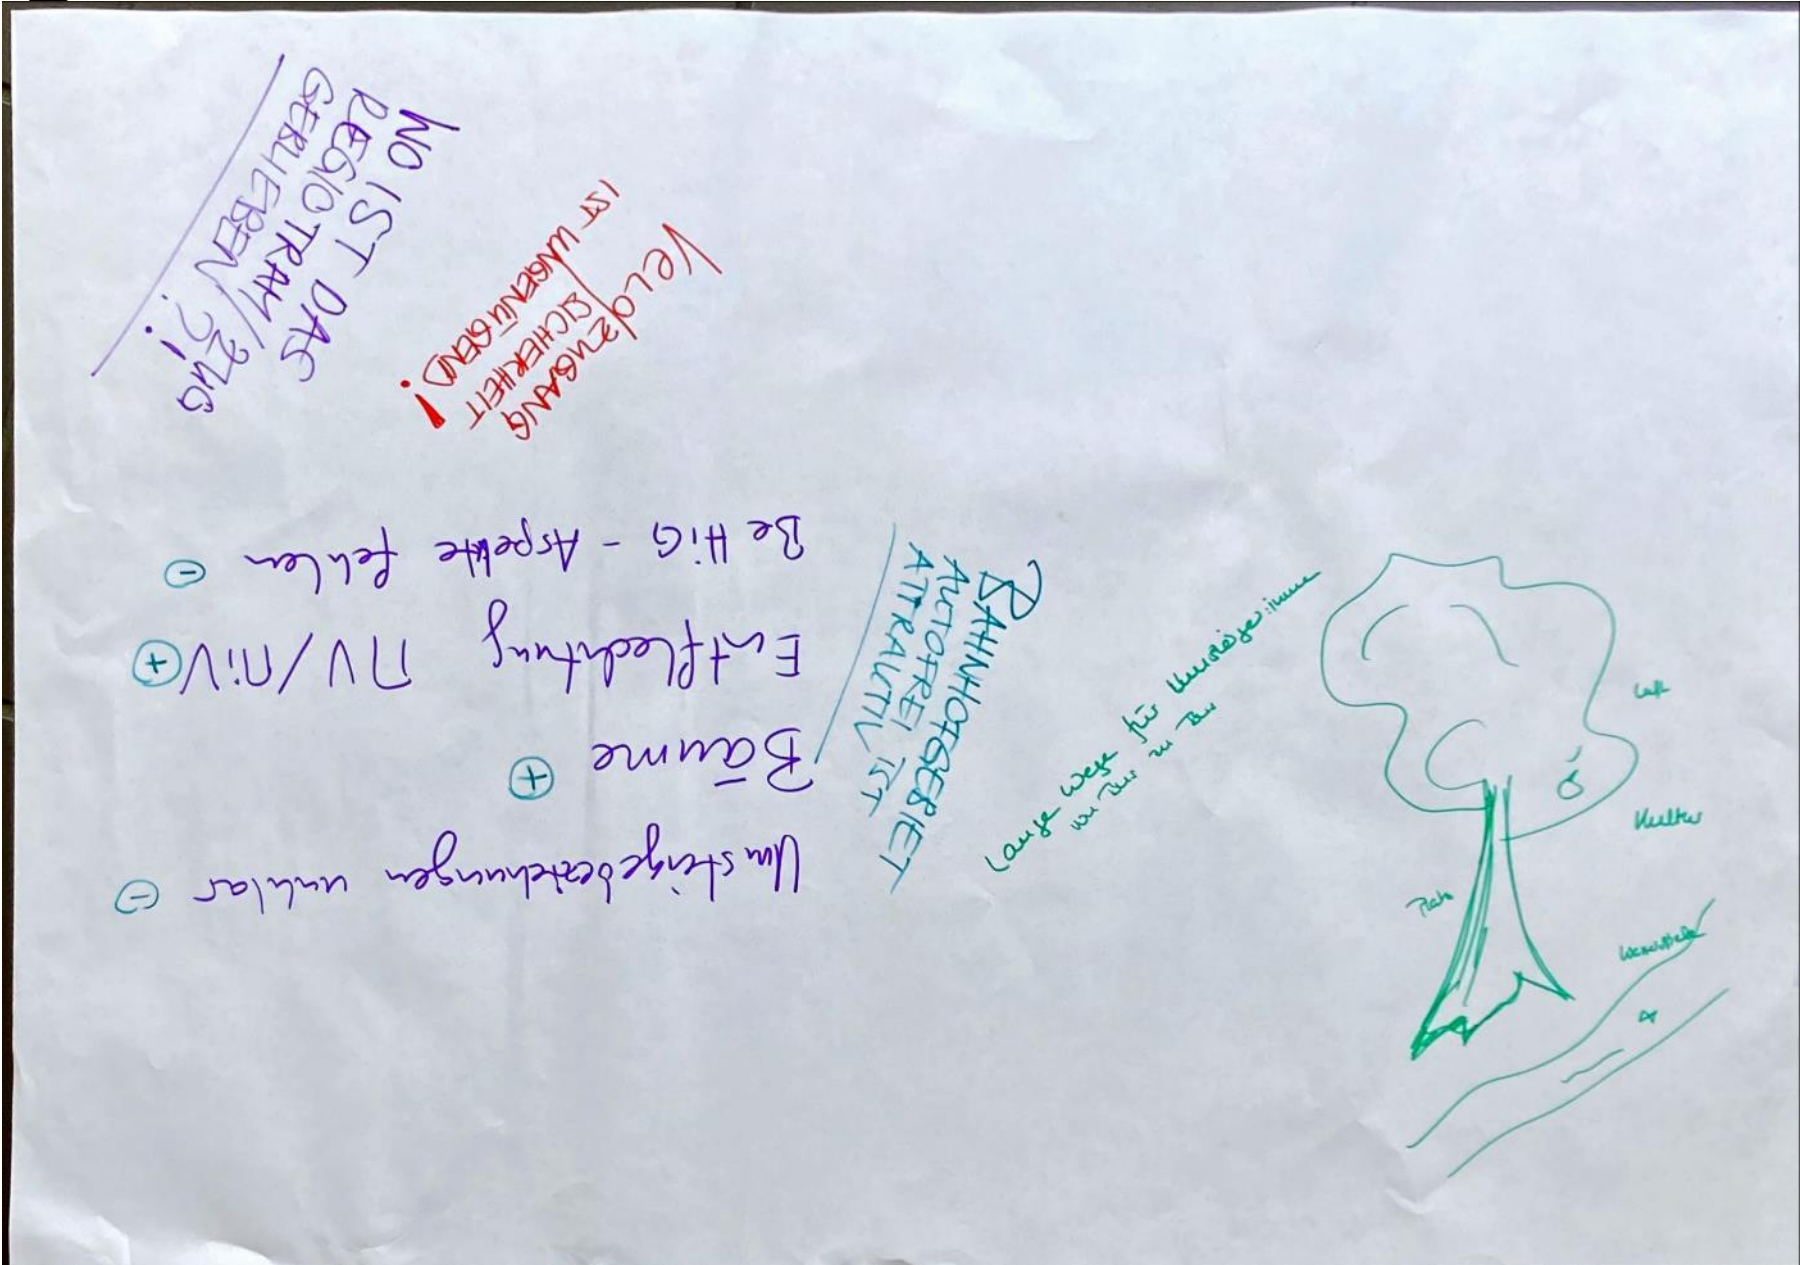 WO IST DAS
REGIOTRAM/ZUG
GEBLIEBEN?!
Velo ZUGANG
SICHERHEIT
IST UNGENÜGEND!
Umsteigebeziehungen unklar ⊖
Bäume ⊕
Entflechtung MV/MiV ⊕
BeHiG - Aspekte fehlen ⊖
BAHNHOFGEBIET
AUTOFREI
ATTRAKTIV IST
Lange Wege für Umsteiger:innen
von Bus zu Bus
Luft
Kultur
Platz